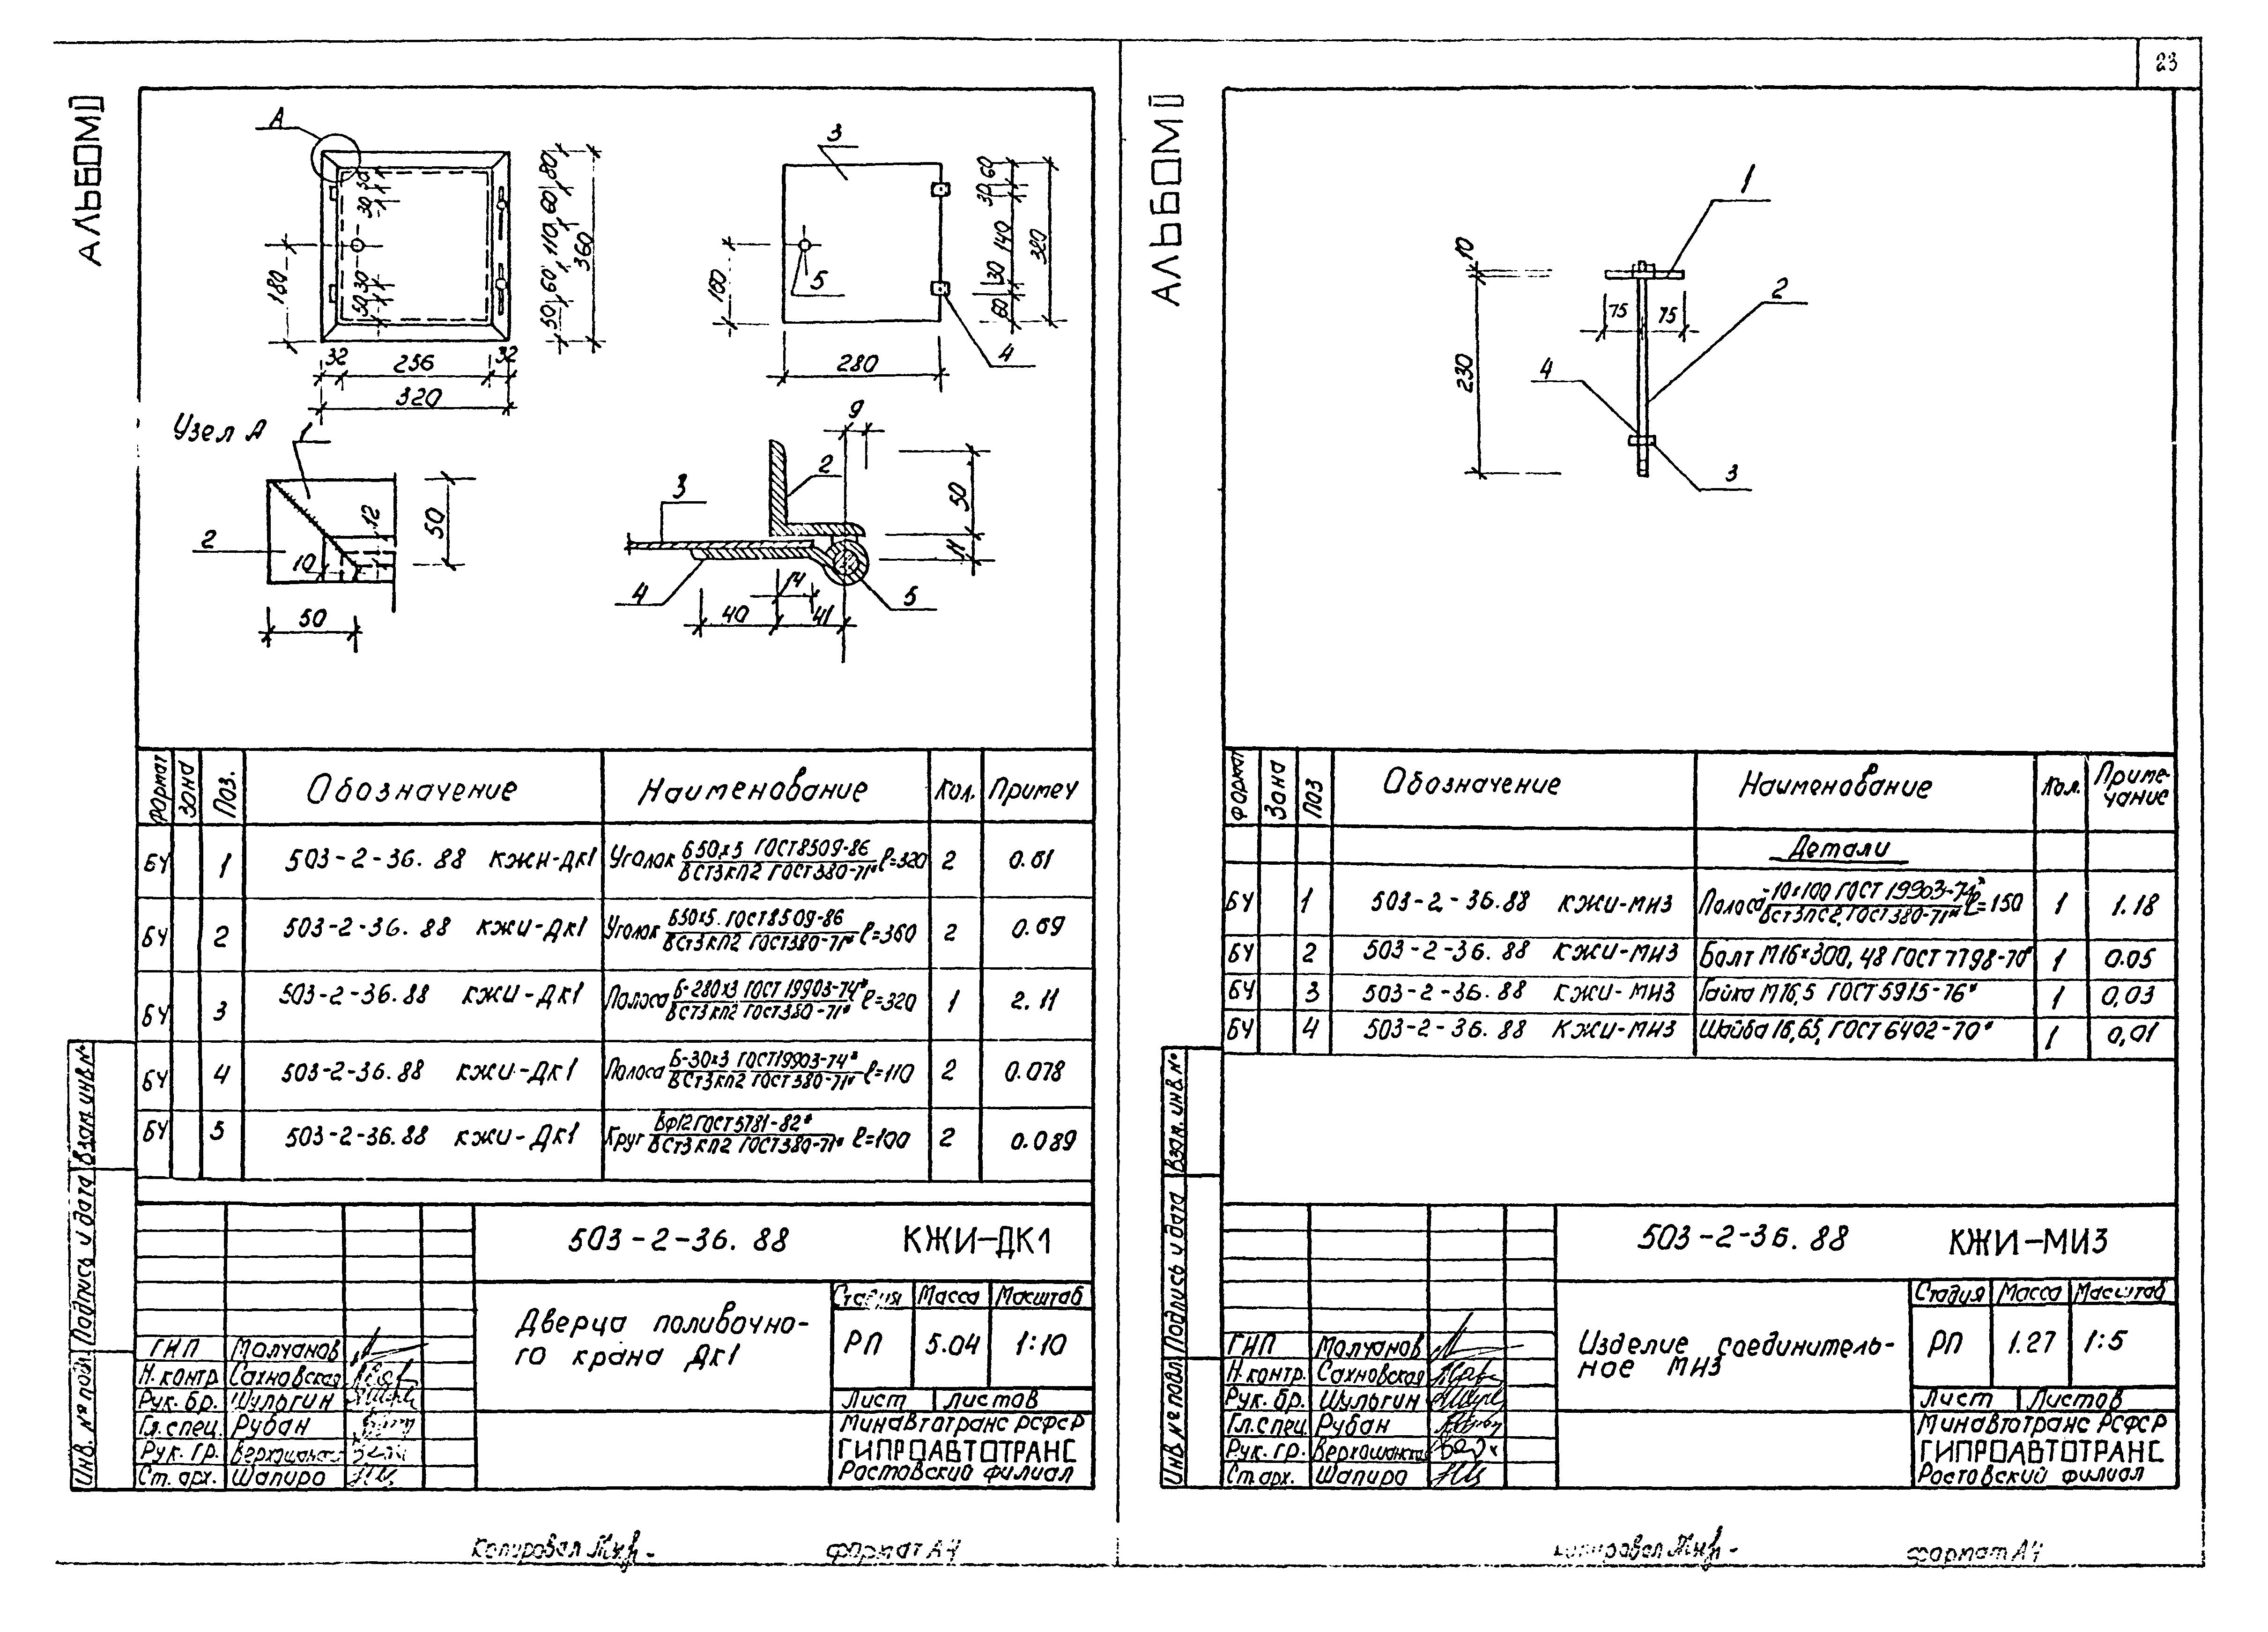 23
АЛЬБОМ II
А
50
30
180
30
50
80
60
110
60
50
360
32
256
32
320
3
5
160
60
30
140
30
60
320
4
280
Узел А
1
2
12
10
50
50
9
2
3
50
11
4
14
40
41
5
Формат Зона Поз. Обозначение Наименование Кол. Примеч
БЧ 1 503-2-36.88 КЖИ-ДК1 Уголок Б50х5 ГОСТ8509-86 / ВСТ3КП2 ГОСТ380-71* ℓ=320 2 0.61
БЧ 2 503-2-36.88 КЖИ-ДК1 Уголок Б50х5. ГОСТ8509-86 / ВСТ3КП2 ГОСТ380-71* ℓ=360 2 0.69
БЧ 3 503-2-36.88 КЖИ-ДК1 Полоса Б-280х3 ГОСТ 19903-74* / ВСТ3КП2 ГОСТ380-71* ℓ=320 1 2.11
БЧ 4 503-2-36.88 КЖИ-ДК1 Полоса Б-30х3 ГОСТ19903-74* / ВСТ3КП2 ГОСТ380-71* ℓ=110 2 0.078
БЧ 5 503-2-36.88 КЖИ-ДК1 Круг ВФ12 ГОСТ5781-82* / ВСТ3КП2 ГОСТ380-71* ℓ=100 2 0.089
503-2-36.88 КЖИ-ДК1
Дверца поливочно-
го крана ДК1
Стадия Масса Масштаб
РП 5.04 1:10
Лист Листов
Минавтотранс РСФСР
ГИПРОАВТОТРАНС
Ростовский филиал
ГИП Молчанов
Н.контр. Сахновская
Рук. бр. Шульгин
Гл.спец. Рубан
Рук. гр. Верхошанская
Ст. арх. Шапиро
Инв. № подл. Подпись и дата Взам. инв. №
Копировал
формат А4
АЛЬБОМ II
1
10
75
75
2
230
4
3
Формат Зона Поз Обозначение Наименование Кол. Приме-
чание
Детали
БЧ 1 503-2-36.88 КЖИ-МИ3 Полоса -10х100 ГОСТ 19903-74* / ВСТ3ПС2, ГОСТ380-71* ℓ=150 1 1.18
БЧ 2 503-2-36.88 КЖИ-МИ3 Болт М16х300, 48 ГОСТ 7798-70* 1 0.05
БЧ 3 503-2-36.88 КЖИ-МИ3 Гайка М16,5 ГОСТ5915-76* 1 0,03
БЧ 4 503-2-36.88 КЖИ-МИ3 Шайба 16,65, ГОСТ 6402-70* 1 0,01
503-2-36.88 КЖИ-МИ3
Изделие соединитель-
ное МИ3
Стадия Масса Масштаб
РП 1.27 1:5
Лист Листов
Минавтотранс РСФСР
ГИПРОАВТОТРАНС
Ростовский филиал
ГИП Молчанов
Н.контр. Сахновская
Рук. бр. Шульгин
Гл.спец. Рубан
Рук. гр. Верхошанская
Ст.арх. Шапиро
Инв. № подл. Подпись и дата Взам. инв. №
Копировал
формат А4